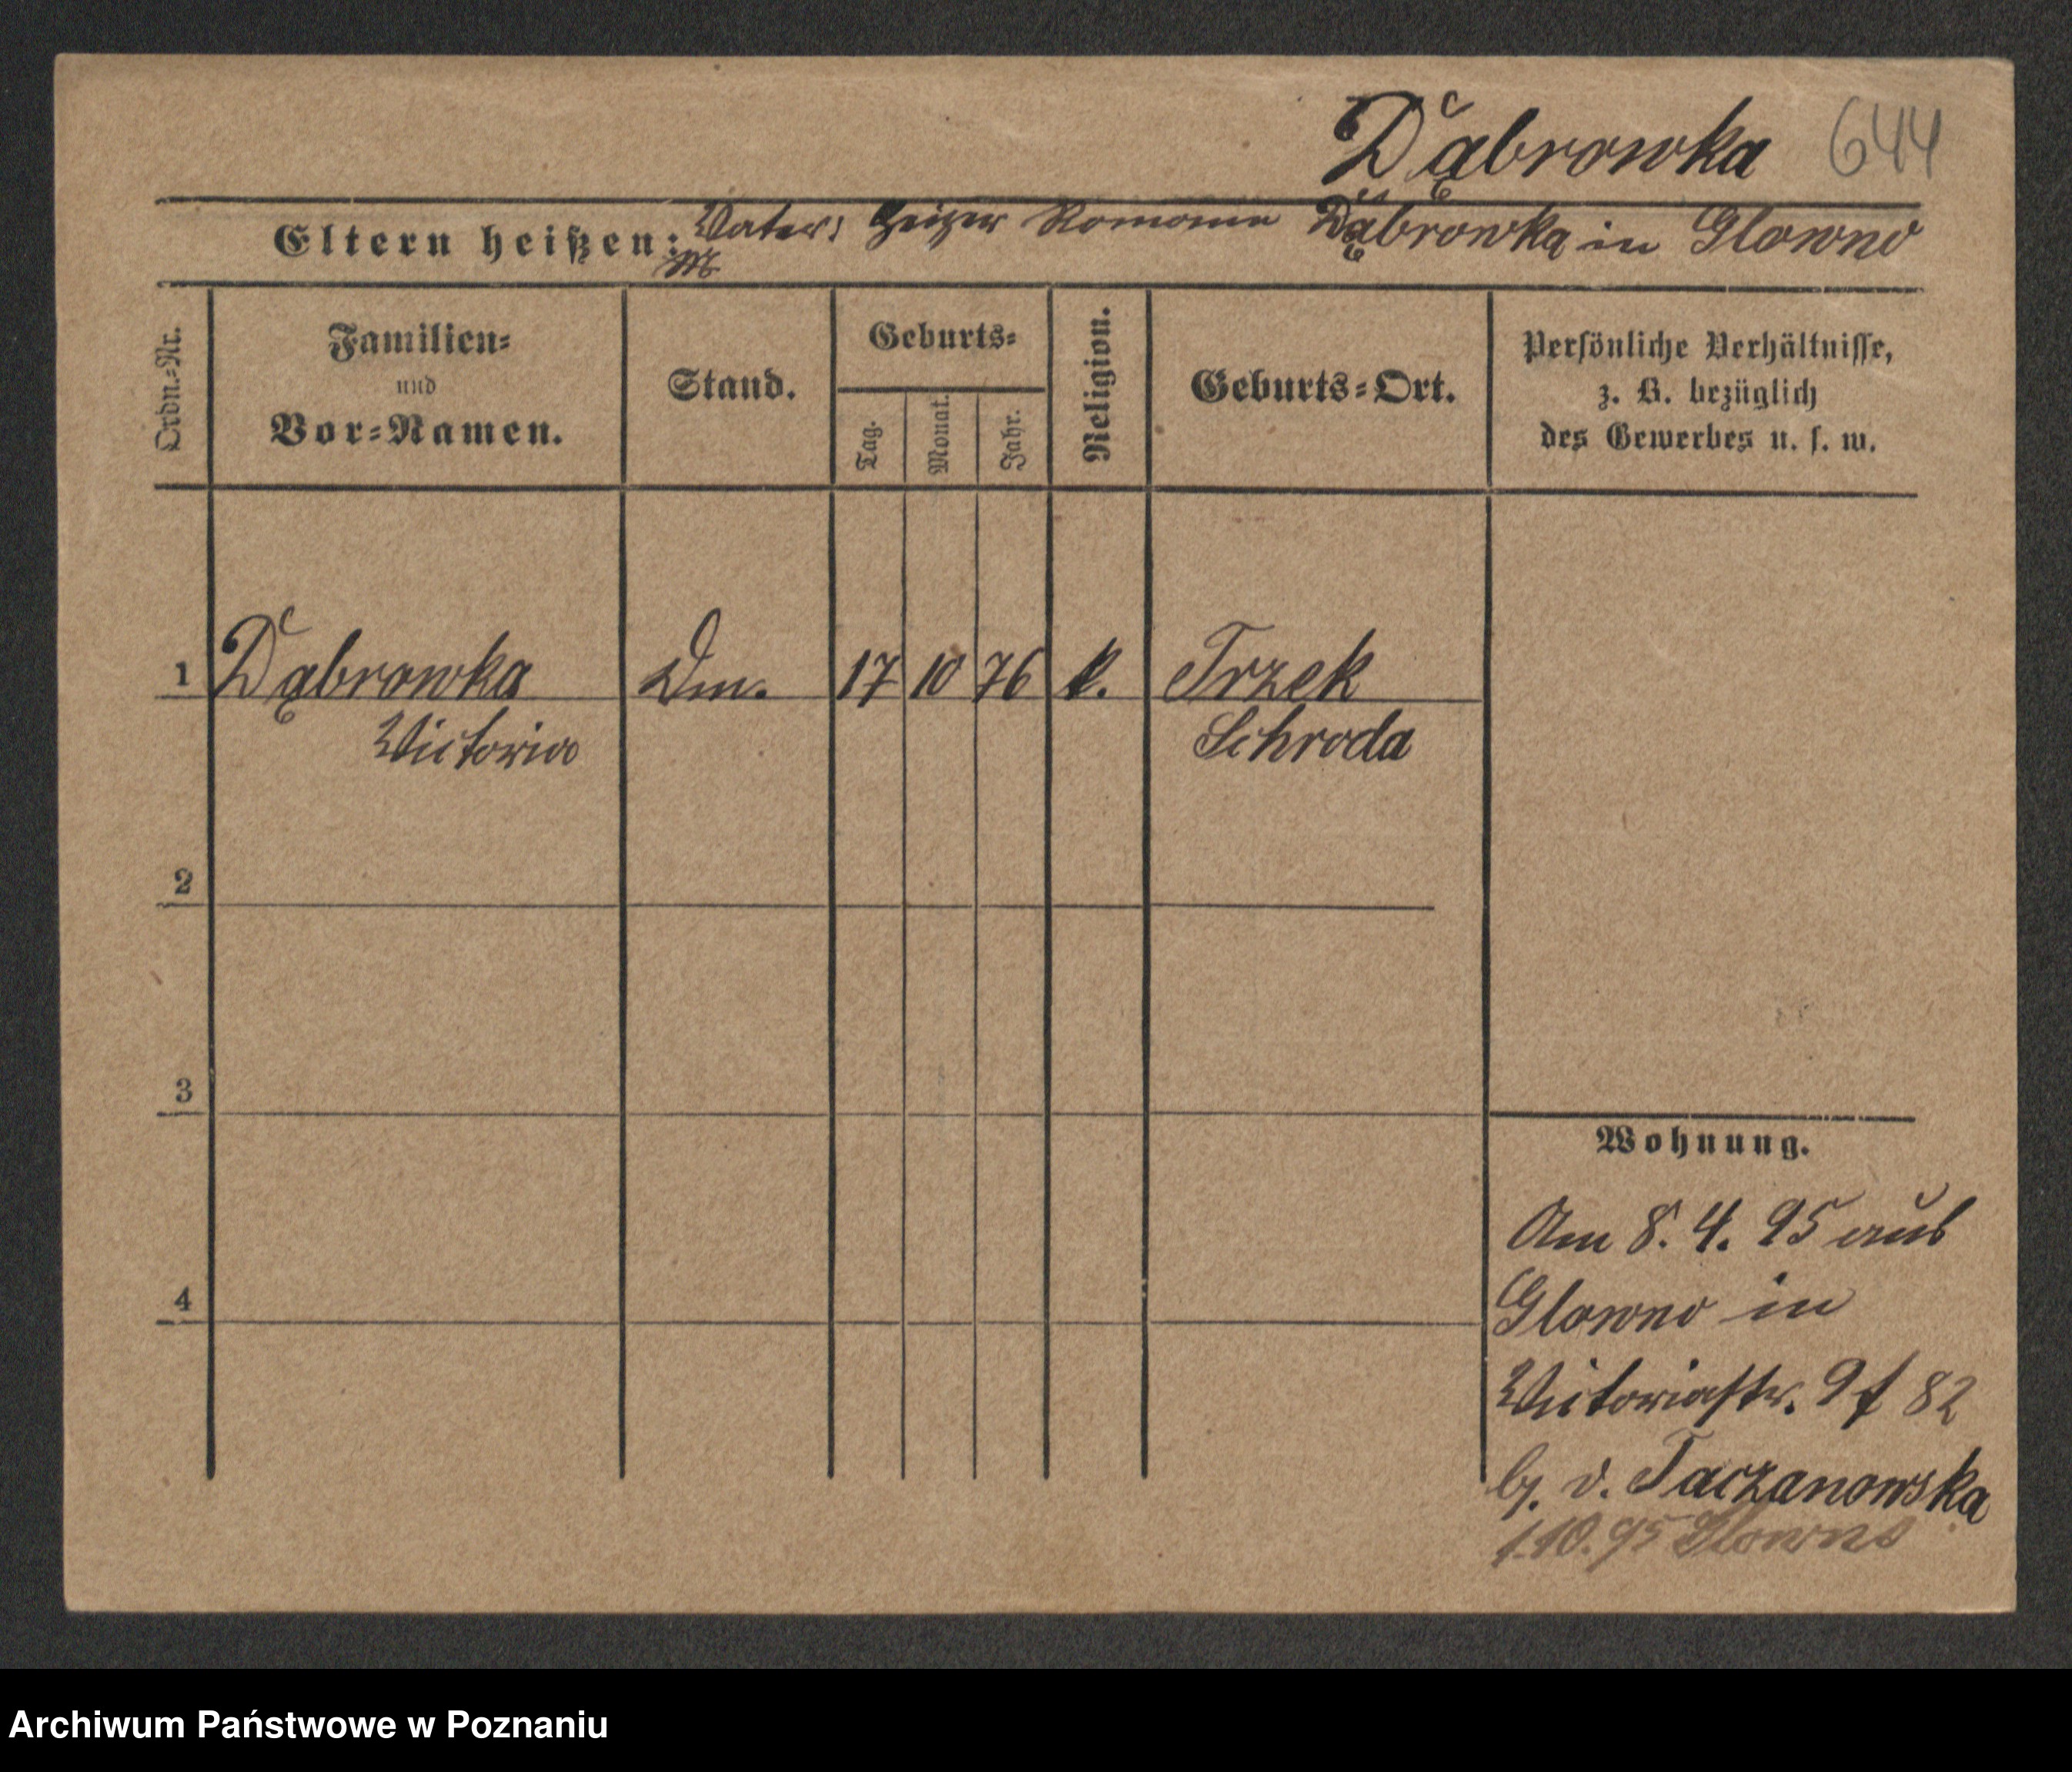 Dąbrowka 644
Eltern heißen: Vater: Heizer Roman Dąbrowka in Glowno
Ordn.=Nr.
Familien=
und
Vor=Namen.
Stand.
Geburts=
Tag.
Monat.
Jahr.
Religion.
Geburts=Ort.
Persönliche Verhältnisse,
z. B. bezüglich
des Gewerbes u. s. w.
1 Dąbrowka 17 10 76 k. Trzek
Victoria Schroda
2
3
4
Wohnung.
Am 8. 4. 95 aus
Glowno in
Victoriastr. 82
b. v. Taczanowska
1.10.95 Glowno
Archiwum Państwowe w Poznaniu